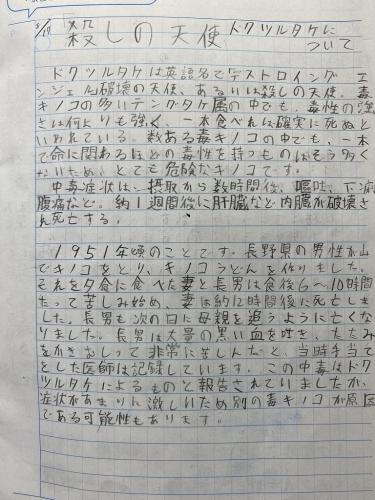 5/17 殺しの天使 ドクツルタケに
ついて
ドクツルタケは英語名でデストロイング エ
ンジェル破壊の天使、あるいは殺しの天使。毒
キノコの多いテングタケ属の中でも、毒性の強
さは何よりも強く、一本食べれば確実に死ぬと
いわれている。数ある毒キノコの中でも、一本
で命に関わるほどの毒性を持つものはそう多く
ないため、とても危険なキノコです。
中毒症状は、摂取から数時間後、嘔吐、下痢
腹痛など。約1週間後に肝臓など内臓が破壊さ
れ死亡する。
1951年頃のことです。長野県の男性が山
でキノコをとり、キノコうどんを作りました。
それを夕食に食べた妻と長男は食後6~10時間
たって苦しみ始め、妻は約12時間後に死亡しま
した。長男も次の日に母親を追うように亡くな
りました。長男は大量の黒い血を吐き、たたみ
をかきむしって非常に苦しんだと、当時手当て
をした医師は記録しています。この中毒はドク
ツルタケによるものと報告されていましたが、
症状があまりに激しいため別の毒キノコが原因
である可能性もあります。